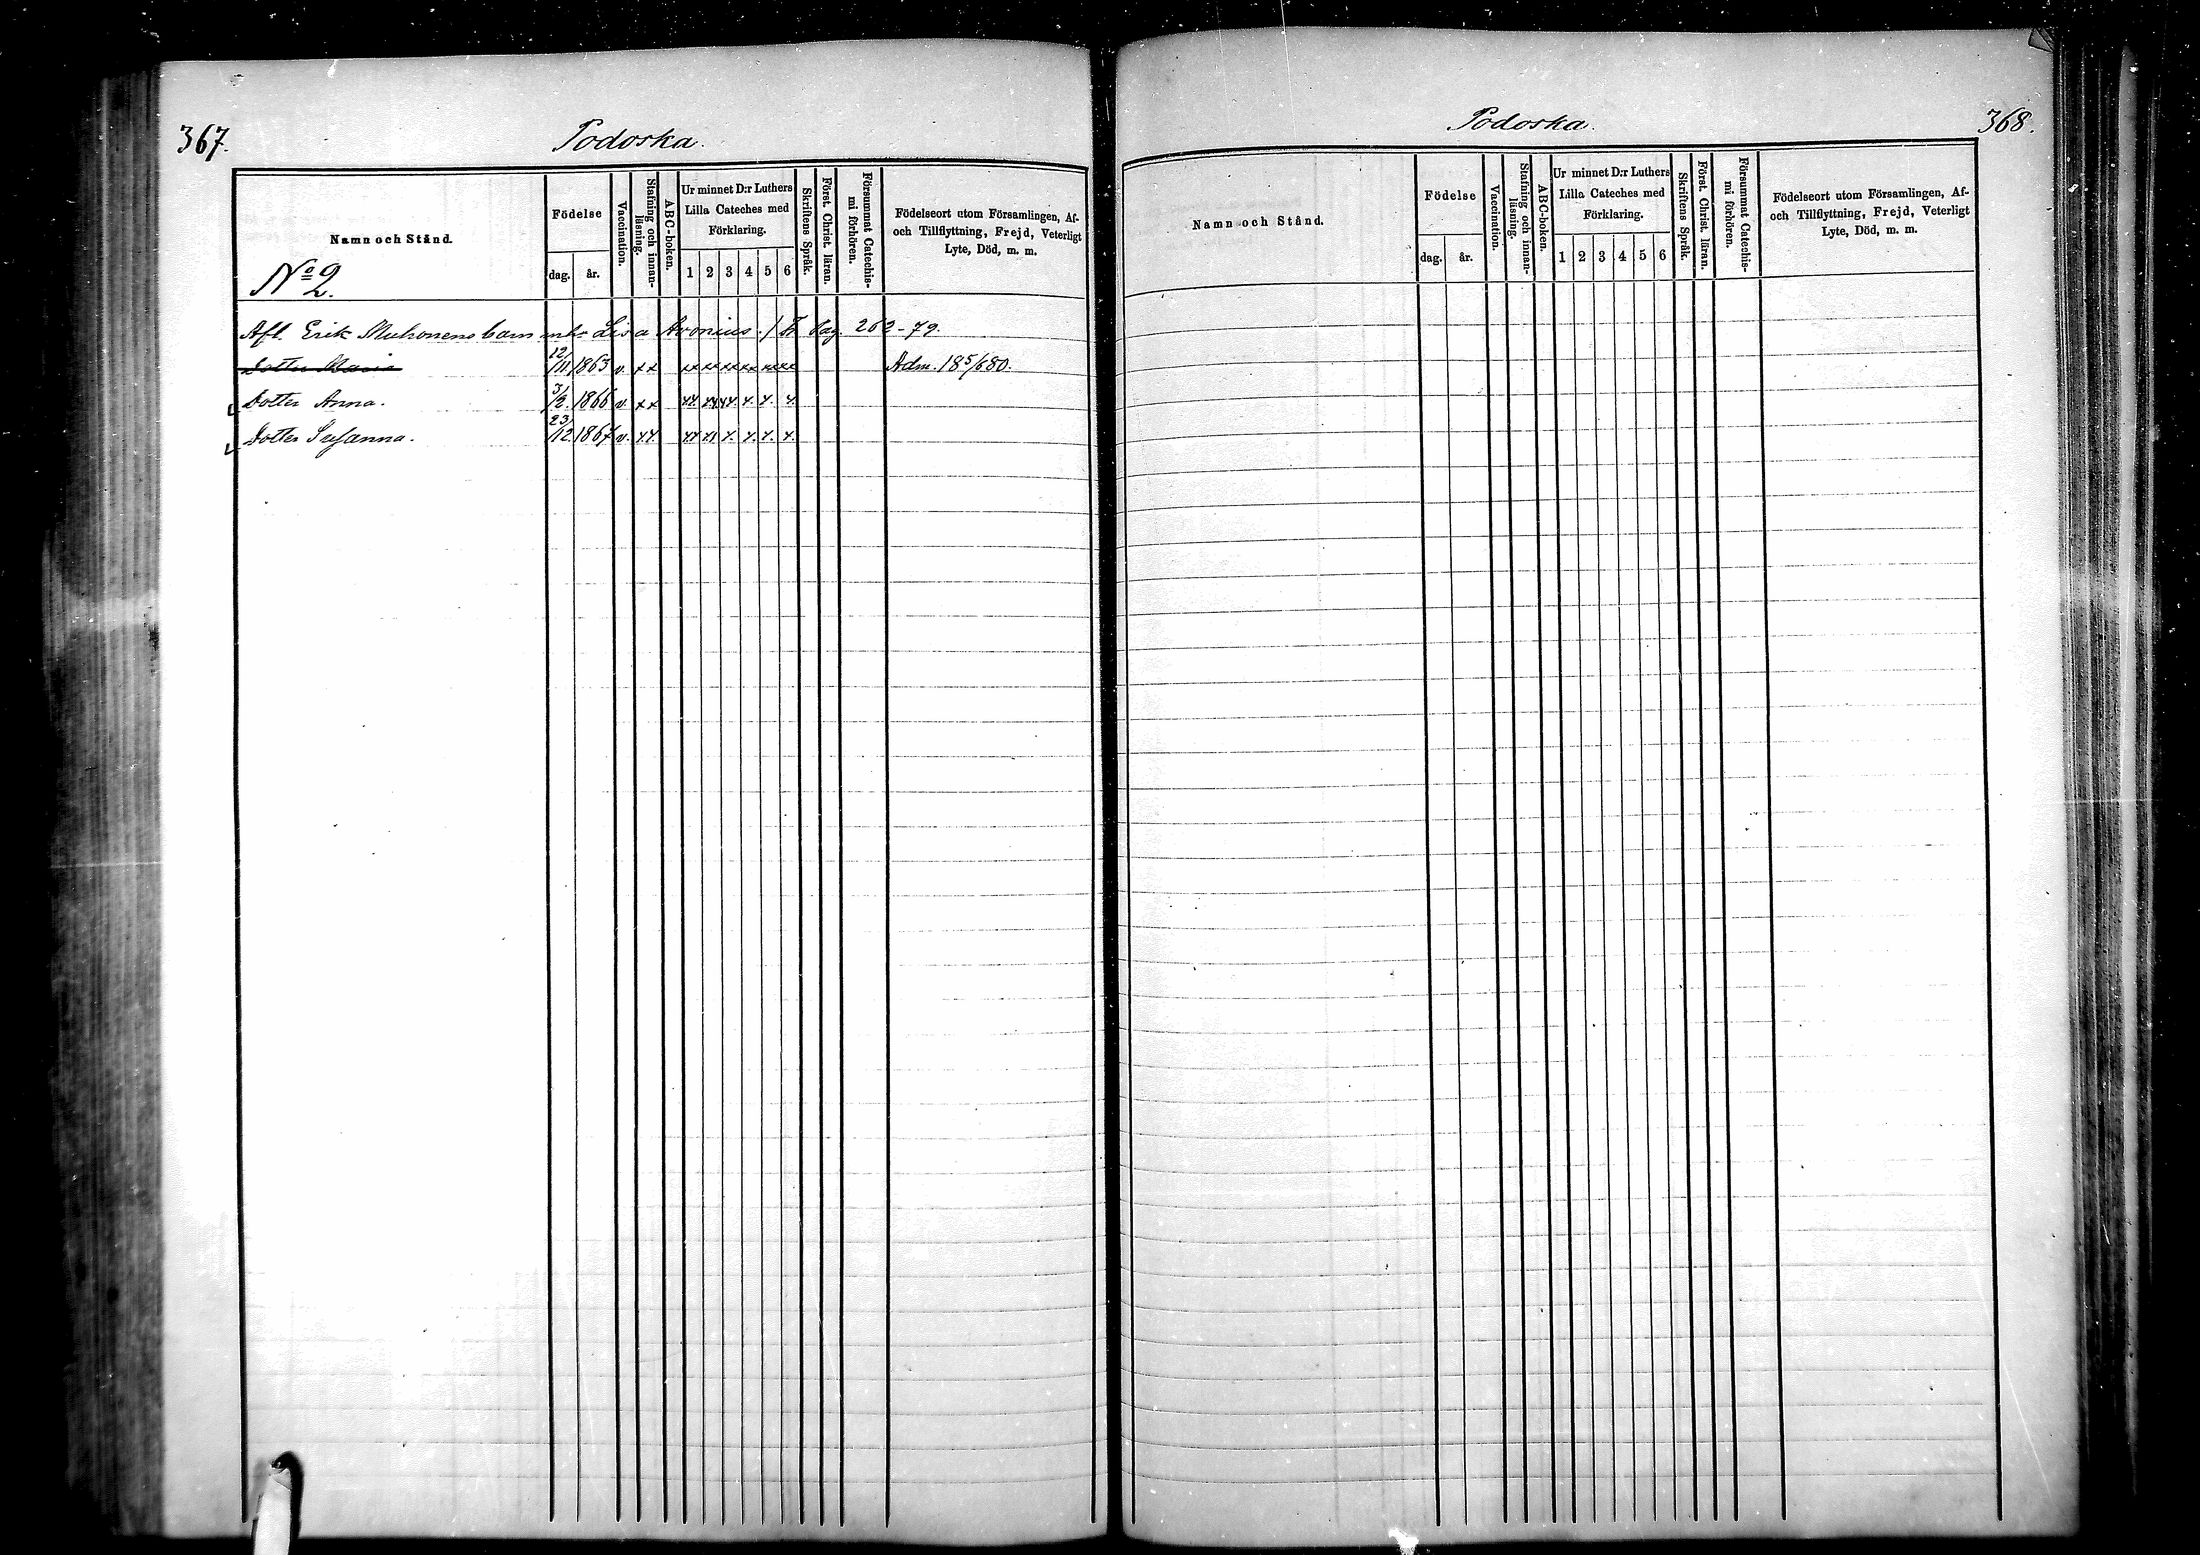 367.
Podoska.
Namn och Stånd.
Födelse
dag.
år.
Vaccination.
Stafning och innan-
läsning.
ABC-boken.
Ur minnet D:r Luthers
Lilla Cateches med
Förklaring.
1 2 3 4 5 6
Skriftens Språk.
Först. Christ. läran.
Försummat Catechis-
mi förhören.
Födelseort utom Församlingen, Af-
och Tillflyttning, Frejd, Veterligt
Lyte, Död, m. m.
No 2.
Afl. Erik Muhonens barn Lisa Avonius. pag. 262-79.
Dotter Maria 12/11 1863 v. xx xx xx xx xx xx xx Adm. 18 5/6 80.
Dotter Anna. 3/2. 1866 v. xx xx. xx xx. x. x. x.
Dotter Susanna. 23/12 1867 v. xx. xx xx x. x. x. x.
Podoska.
368.
Namn och Stånd.
Födelse
dag.
år.
Vaccination.
Stafning och innan-
läsning.
ABC-boken.
Ur minnet D:r Luthers
Lilla Cateches med
Förklaring.
1 2 3 4 5 6
Skriftens Språk.
Först. Christ. läran.
Försummat Catechis-
mi förhören.
Födelseort utom Församlingen, Af-
och Tillflyttning, Frejd, Veterligt
Lyte, Död, m. m.